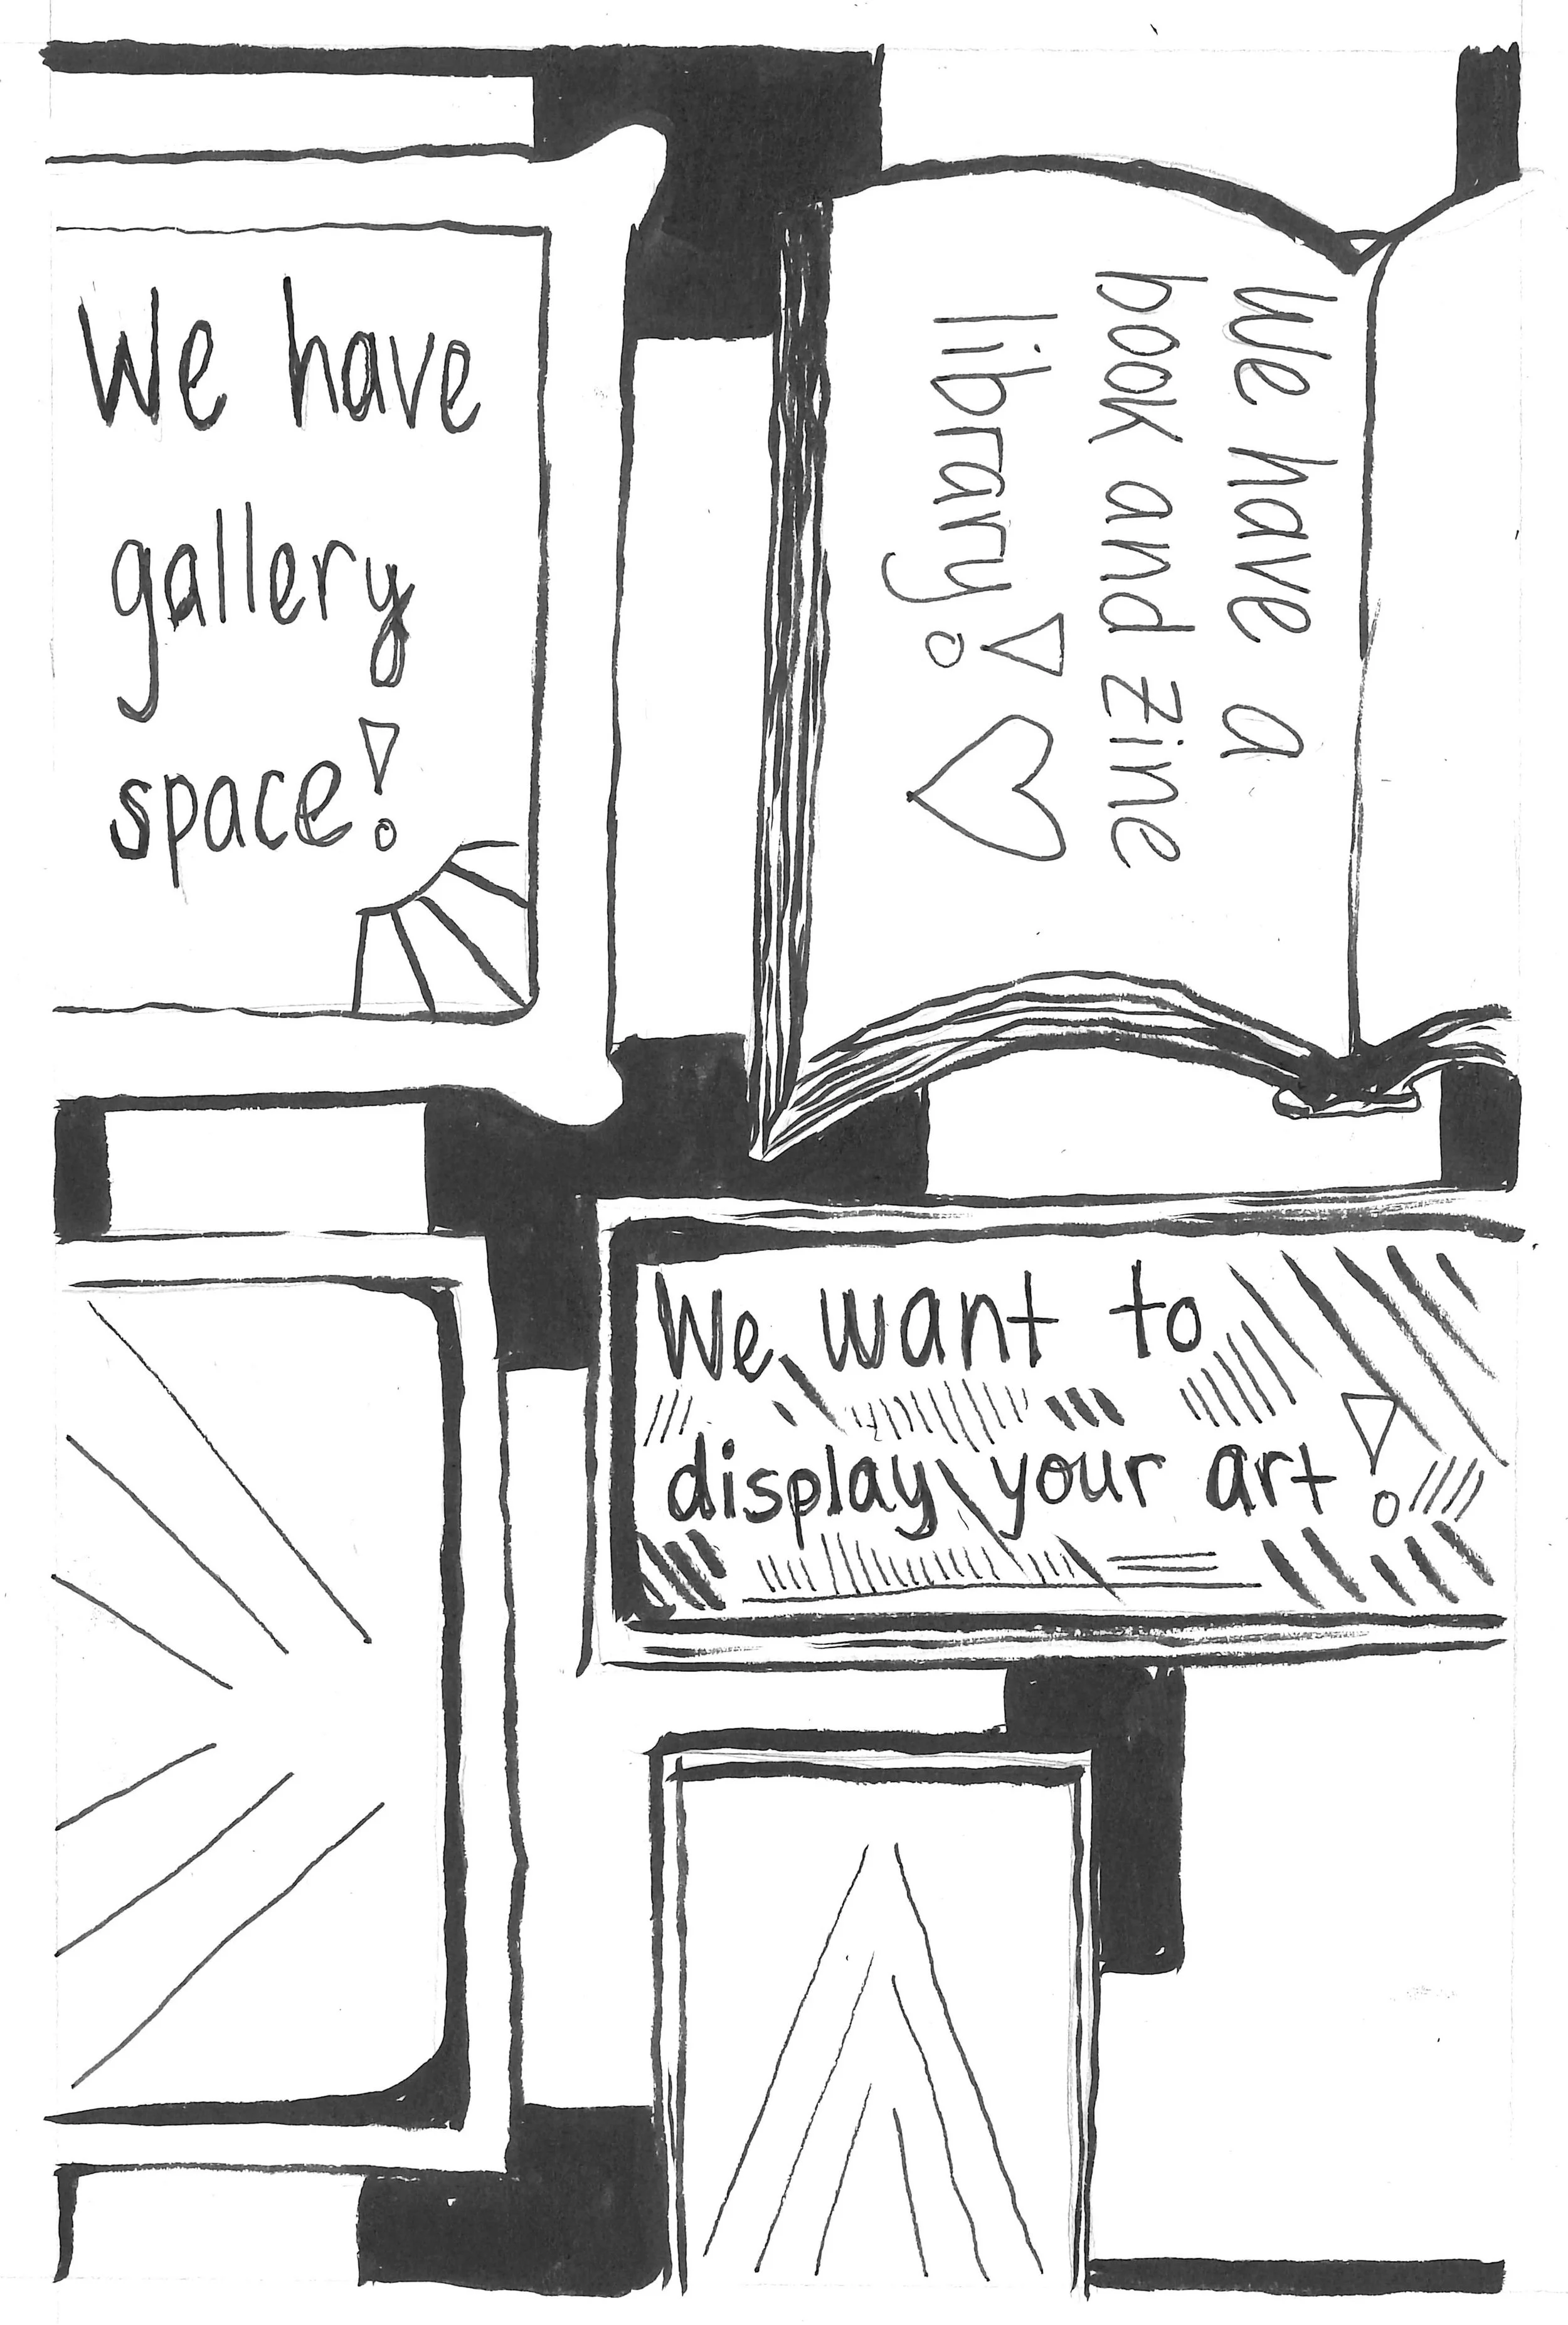 We have
gallery
space!
We have a
book and zine
library!
We want to
display your art!